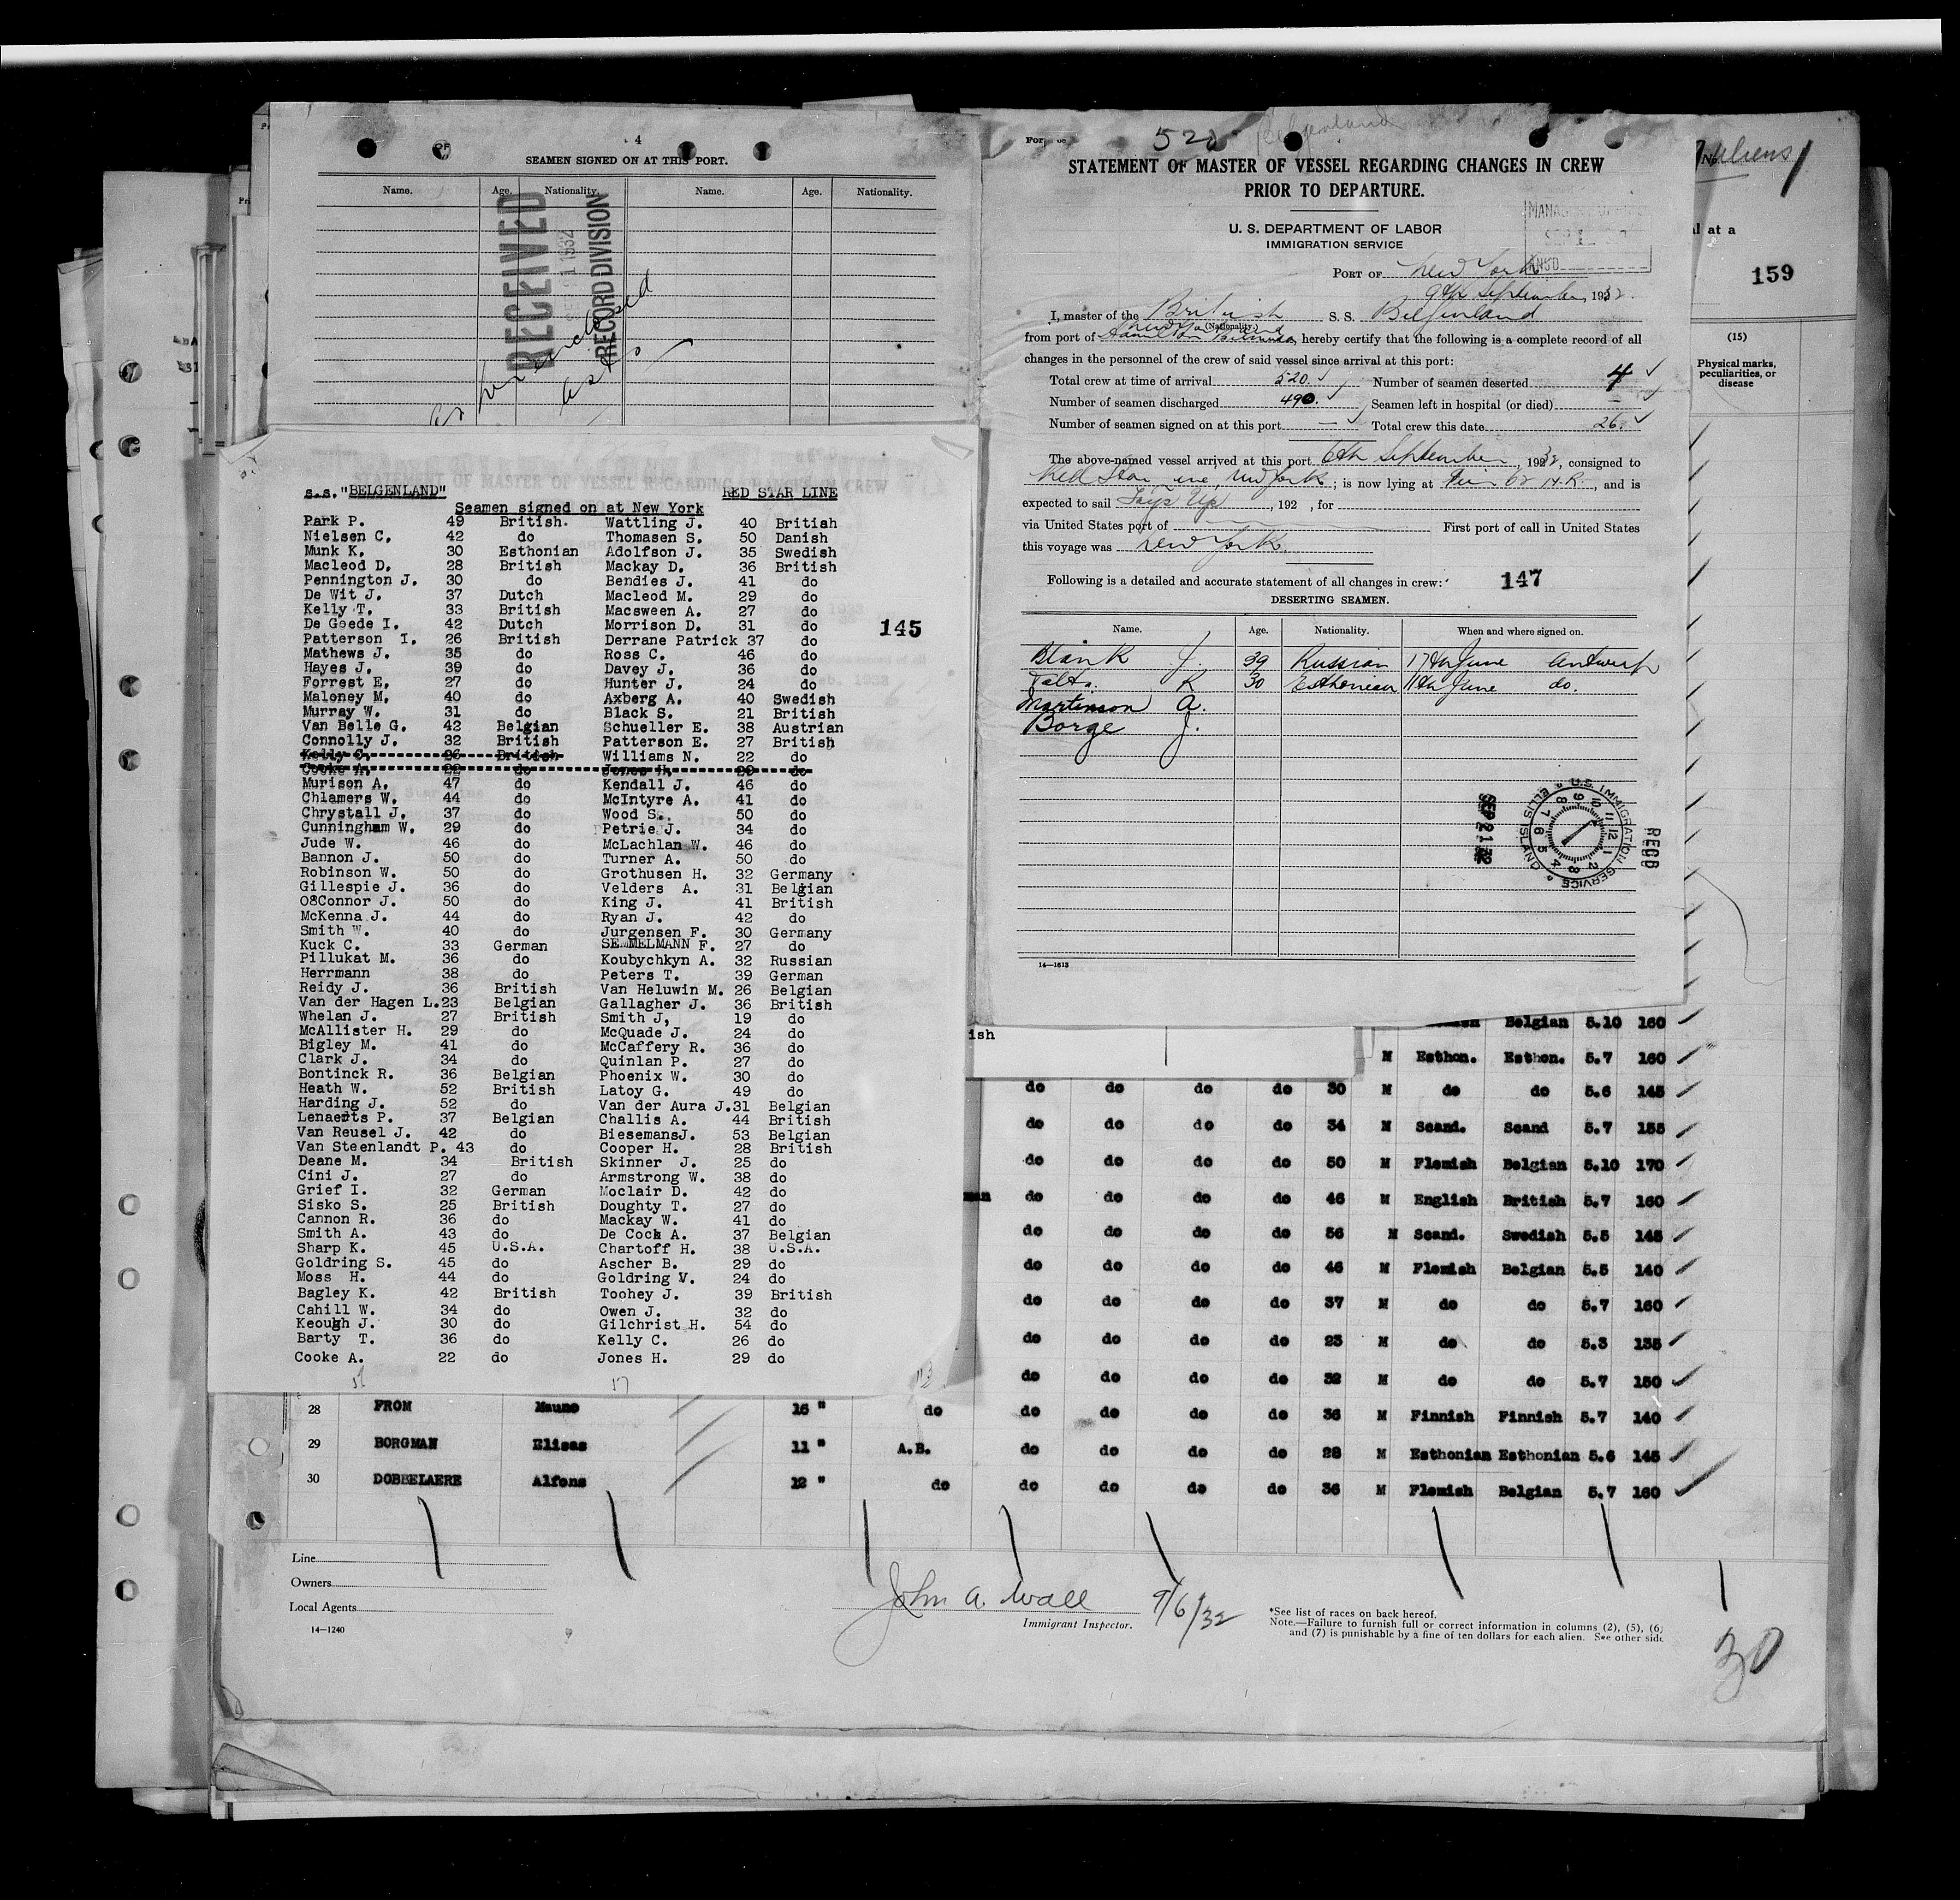 4
SEAMEN SIGNED ON AT THIS PORT.
Name. Age. Nationality. Name. Age. Nationality.
RECEIVED
RECORD DIVISION
s.s."BELGENLAND" RED STAR LINE
Seamen signed on at New York
Park P. 49 British. Wattling J. 40 British
Nielsen C. 42 do Thomasen S. 50 Danish
Munk K. 30 Esthonian Adolfson J. 35 Swedish
Macleod D. 28 British Mackay D. 36 British
Pennington J. 30 do Bendies J. 41 do
De Wit J. 37 Dutch Macleod M. 29 do
Kelly T. 33 British Macsween A. 27 do
De Goede I. 42 Dutch Morrison D. 31 do
Patterson I. 26 British Derrane Patrick 37 do
145
Mathews J. 35 do Ross C. 46 do
Hayes J. 39 do Davey J. 36 do
Forrest E. 27 do Hunter J. 24 do
Maloney M. 40 do Axberg A. 40 Swedish
Murray W. 31 do Black S. 21 British
Van Belle G. 42 Belgian Schueller E. 38 Austrian
Connolly J. 32 British Patterson E. 27 British
Kelly C. 26 British Williams N. 22 do
Cooke A. 22 do Jones H. 29 do
Murison A. 47 do Kendall J. 46 do
Chlamers W. 44 do McIntyre A. 41 do
Chrystall J. 37 do Wood S. 50 do
Cunningham W. 29 do Petrie J. 34 do
Jude W. 46 do McLachlan W. 46 do
Bannon J. 50 do Turner A. 50 do
Robinson W. 50 do Grothusen H. 32 Germany
Gillespie J. 36 do Velders A. 31 Belgian
O8Connor J. 50 do King J. 41 British
McKenna J. 44 do Ryan J. 42 do
Smith W. 40 do Jurgensen F. 30 Germany
Kuck C. 33 German SEMMELMANN F. 27 do
Pillukat M. 36 do Koubychkyn A. 32 Russian
Herrmann 38 do Peters T. 39 German
Reidy J. 36 British Van Heluwin M. 26 Belgian
Van der Hagen L. 23 Belgian Gallagher J. 36 British
Whelan J. 27 British Smith J, 19 do
McAllister H. 29 do McQuade J. 24 do
Bigley M. 41 do McCaffery R. 36 do
Clark J. 34 do Quinlan P. 27 do
Bontinck R. 36 Belgian Phoenix W. 30 do
Heath W. 52 British Latoy G. 49 do
Harding J. 52 do Van der Aura J. 31 Belgian
Lenaerts P. 37 Belgian Challis A. 44 British
Van Reusel J. 42 do BiesemansJ. 53 Belgian
Van Steenlandt P. 43 do Cooper H. 28 British
Deane M. 34 British Skinner J. 25 do
Cini J. 27 do Armstrong W. 38 do
Grief I. 32 German Moclair D. 42 do
Sisko S. 25 British Doughty T. 27 do
Cannon R. 36 do Mackay W. 41 do
Smith A. 43 do De Cock A. 37 Belgian
Sharp K. 45 U.S.A. Chartoff H. 38 U.S.A.
Goldring S. 45 do Ascher B. 29 do
Moss H. 44 do Goldring V. 24 do
Bagley K. 42 British Toohey J. 39 British
Cahill W. 34 do Owen J. 32 do
Keough J. 30 do Gilchrist H. 54 do
Barty T. 36 do Kelly C. 26 do
Cooke A. 22 do Jones H. 29 do
17
Belgenland
STATEMENT OF MASTER OF VESSEL REGARDING CHANGES IN CREW
PRIOR TO DEPARTURE.
U. S. DEPARTMENT OF LABOR
IMMIGRATION SERVICE
PORT OF New York
9th September, 1932.
I, master of the British S. S. Belgenland
(Nationality.)
from port of Hamilton Bermuda, hereby certify that the following is a complete record of all
changes in the personnel of the crew of said vessel since arrival at this port:
Total crew at time of arrival 520. Number of seamen deserted 4
Number of seamen discharged 490. Seamen left in hospital (or died) —
Number of seamen signed on at this port — Total crew this date 26.
The above-named vessel arrived at this port 6th September, 1932, consigned to
Red Star Line, New York; is now lying at Pier 62 N.R., and is
expected to sail Lays Up, 192 , for
via United States port of First port of call in United States
this voyage was New York.
Following is a detailed and accurate statement of all changes in crew: 147
DESERTING SEAMEN.
Name. Age. Nationality. When and where signed on.
Blank J. 39 Russian 17th June Antwerp
Talts R 30 Esthonian 11th June do.
Martinson A.
Borge J.
SEP 21 32
U.S. IMMIGRATION SERVICE ELLIS ISLAND
RECD
14—1613
Aliens
No.
l at a
159
(15)
Physical marks, peculiarities, or disease
ish
Belgian 5.10 160
M Esthon. Esthon. 5.7 160
do do do do 30 M do do 5.6 145
do do do do 34 M Scand. Scand 5.7 155
do do do do 50 M Flemish Belgian 5.10 170
man do do do do 46 M English British 5.7 160
do do do do 56 M Scand. Swedish 5.5 145
do do do do 46 M Flemish Belgian 5.5 140
do do do do 37 M do do 5.7 160
do do do do 23 M do do 5.3 135
do do do do 32 M do do 5.7 150
28 FROM Mauno 16 " do do do do do 36 M Finnish Finnish 5.7 140
29 BORGMAN Elisas 11 " A.B. do do do do 28 M Esthonian Esthonian 5.6 145
30 DOBBELAERE Alfons 12 " do do do do do 36 M Flemish Belgian 5.7 160
Line
Owners
Local Agents
14—1240
John A. Wall 9/6/32
Immigrant Inspector.
*See list of races on back hereof.
Note.—Failure to furnish full or correct information in columns (2), (5), (6)
and (7) is punishable by a fine of ten dollars for each alien. See other side
30